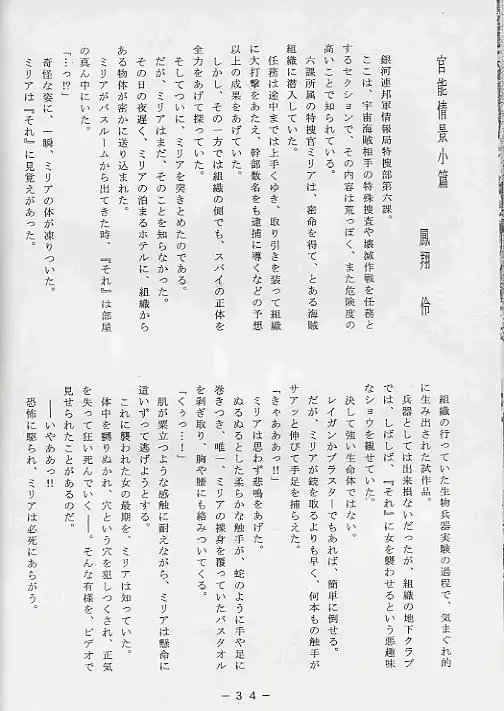 官能情景小篇
鳳翔 伶
銀河連邦軍情報局特捜部第六課。
ここは、宇宙海賊相手の特殊捜査や壊滅作戦を任務と
するセクションで、その内容は荒っぽく、また危険度の
高いことで知られている。
六課所属の特捜官ミリアは、密命を得て、とある海賊
組織に潜入していた。
任務は途中までは上手くゆき、取り引きを装って組織
に大打撃をあたえ、幹部数名をも逮捕に導くなどの予想
以上の成果をあげていた。
しかし、その一方では組織の側でも、スパイの正体を
全力をあげて探っていた。
そしてついに、ミリアを突きとめたのである。
だが、ミリアはまだ、そのことを知らなかった。
その日の夜遅く、ミリアの泊まるホテルに、組織から
ある物体が密かに送り込まれた。
ミリアがバスルームから出てきた時、『それ』は部屋
の真ん中にいた。
「…っ!?」
奇怪な姿に、一瞬、ミリアの体が凍りついた。
ミリアは『それ』に見覚えがあった。
組織の行っていた生物兵器実験の過程で、気まぐれ的
に生み出された試作品。
兵器としては出来損ないだったが、組織の地下クラブ
では、しばしば、『それ』に女を襲わせるという悪趣味
なショウを観せていた。
決して強い生命体ではない。
レイガンかブラスターでもあれば、簡単に倒せる。
だが、ミリアが銃を取るよりも早く、何本もの触手が
サアッと伸びて手足を捕らえた。
「きゃあああっ!!」
ミリアは思わず悲鳴をあげた。
ぬるぬるとした柔らかな触手が、蛇のように手や足に
巻きつき、唯一、ミリアの裸身を覆っていたバスタオル
を剥ぎ取り、胸や腰にも絡みついてくる。
「くぅっ…!」
肌が粟立つような感触に耐えながら、ミリアは懸命に
這いずって逃げようとする。
これに襲われた女の最期を、ミリアは知っていた。
体中を嬲りぬかれ、穴という穴を犯しつくされ、正気
を失って狂い死んでいく――。そんな有様を、ビデオで
見せられたことがあるのだ。
――いやああっ!!
恐怖に駆られ、ミリアは必死にあらがう。
－34－